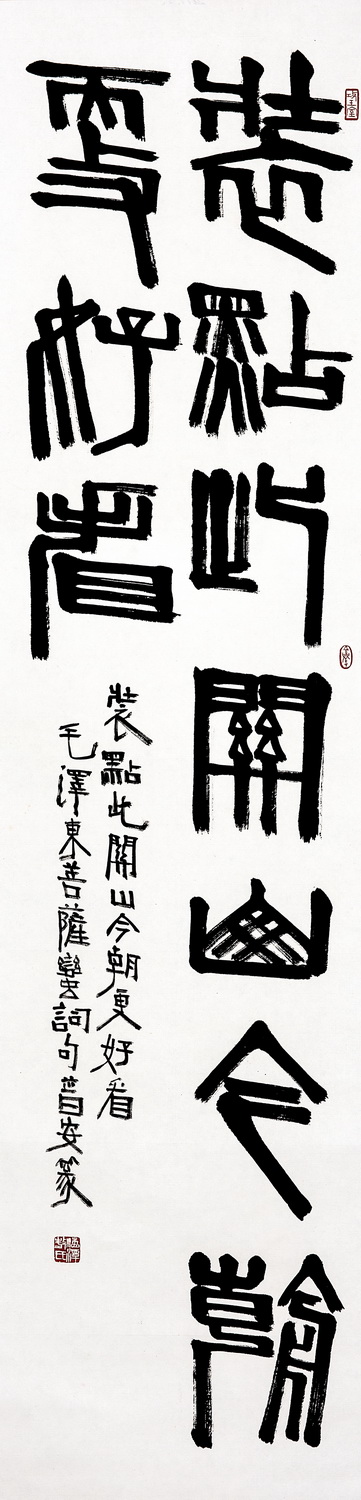 裝點此關山今朝
更好看
裝點此關山今朝更好看
毛澤東菩薩蠻詞句普安篆